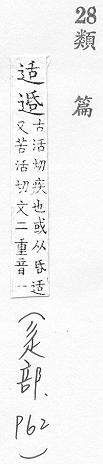 28
類篇
适
古活切疾也或从昏适
又苦活切文二重音一
(辵部、P62)